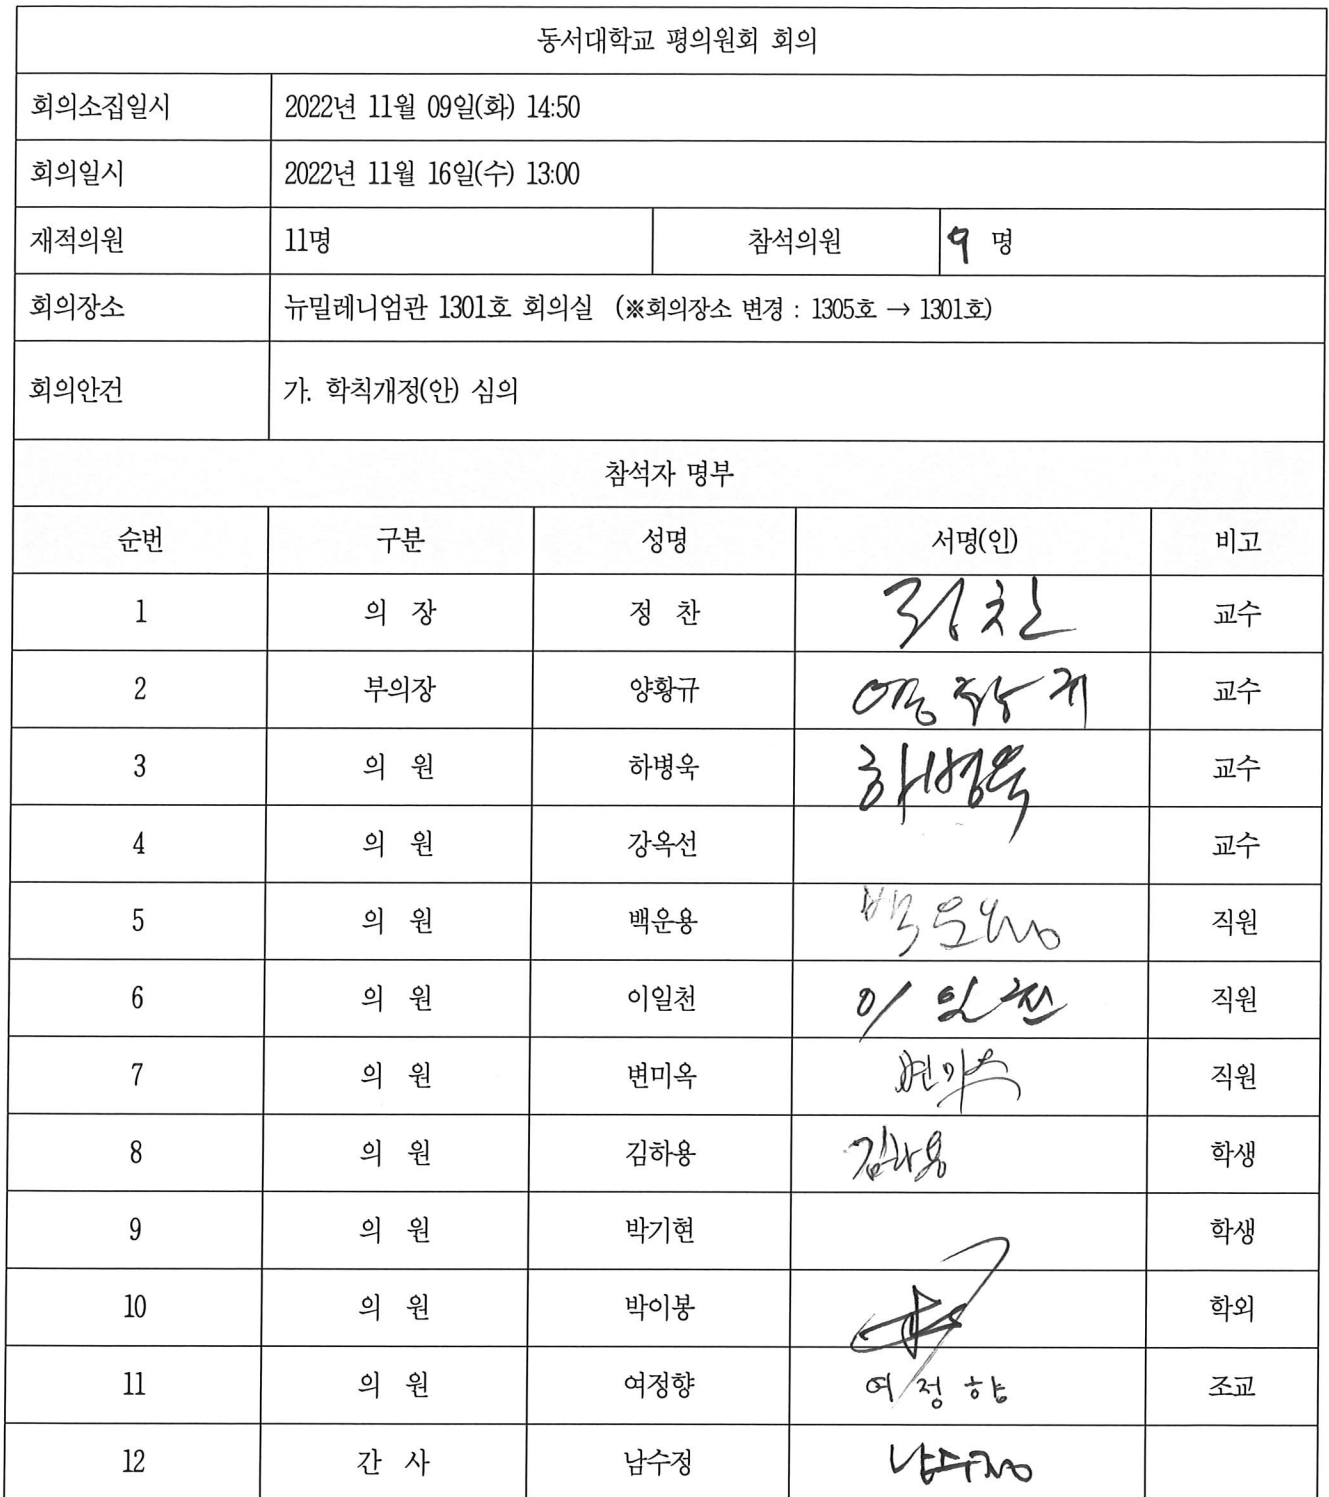 동서대학교 평의원회 회의
회의소집일시 2022년 11월 09일(화) 14:50
회의일시 2022년 11월 16일(수) 13:00
재적의원 11명 참석의원 9 명
회의장소 뉴밀레니엄관 1301호 회의실 (※회의장소 변경 : 1305호 → 1301호)
회의안건 가. 학칙개정(안) 심의
참석자 명부
순번 구분 성명 서명(인) 비고
1 의 장 정 찬 정찬 교수
2 부의장 양황규 양황규 교수
3 의 원 하병욱 하병욱 교수
4 의 원 강옥선 교수
5 의 원 백운용 백운용 직원
6 의 원 이일천 이일천 직원
7 의 원 변미옥 변미옥 직원
8 의 원 김하용 김하용 학생
9 의 원 박기현 학생
10 의 원 박이봉 학외
11 의 원 여정향 여정향 조교
12 간 사 남수정 남수정